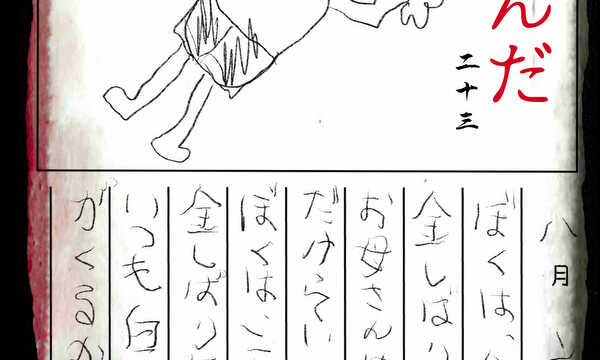 んだ
二十三
八月
ぼくは、
金しばり
お母さん
だ
ぼくは、
金しばり
いつも白
がくるか